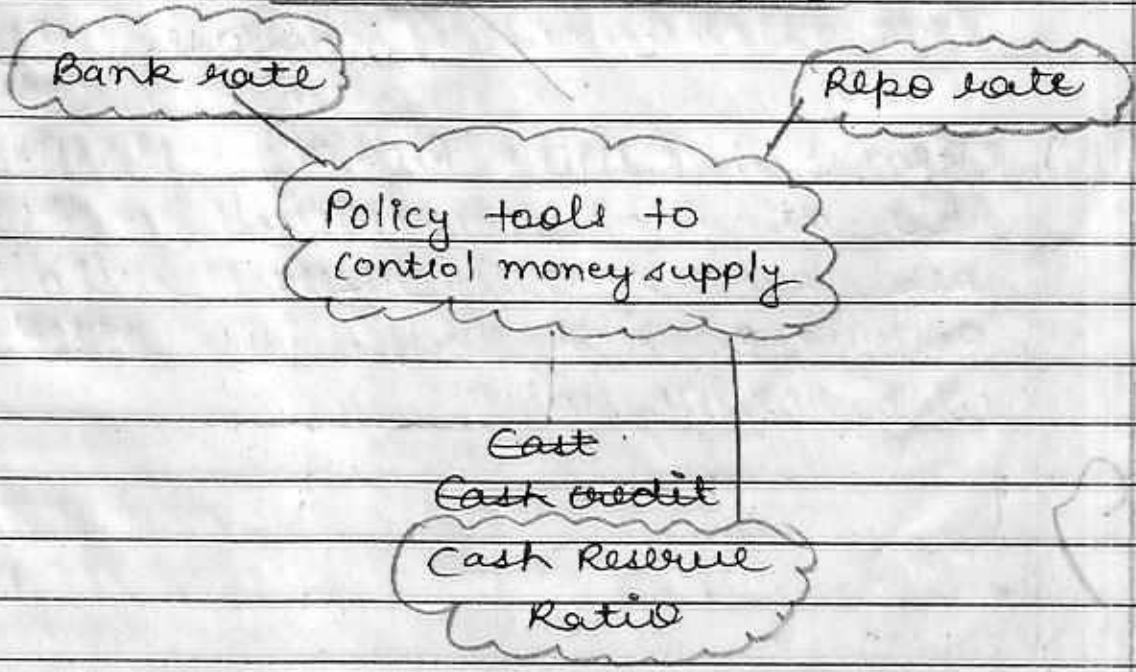 Bank rate
Repo rate
Policy tools to
control money supply
Cast
Cash credit
Cash Reserve
Ratio